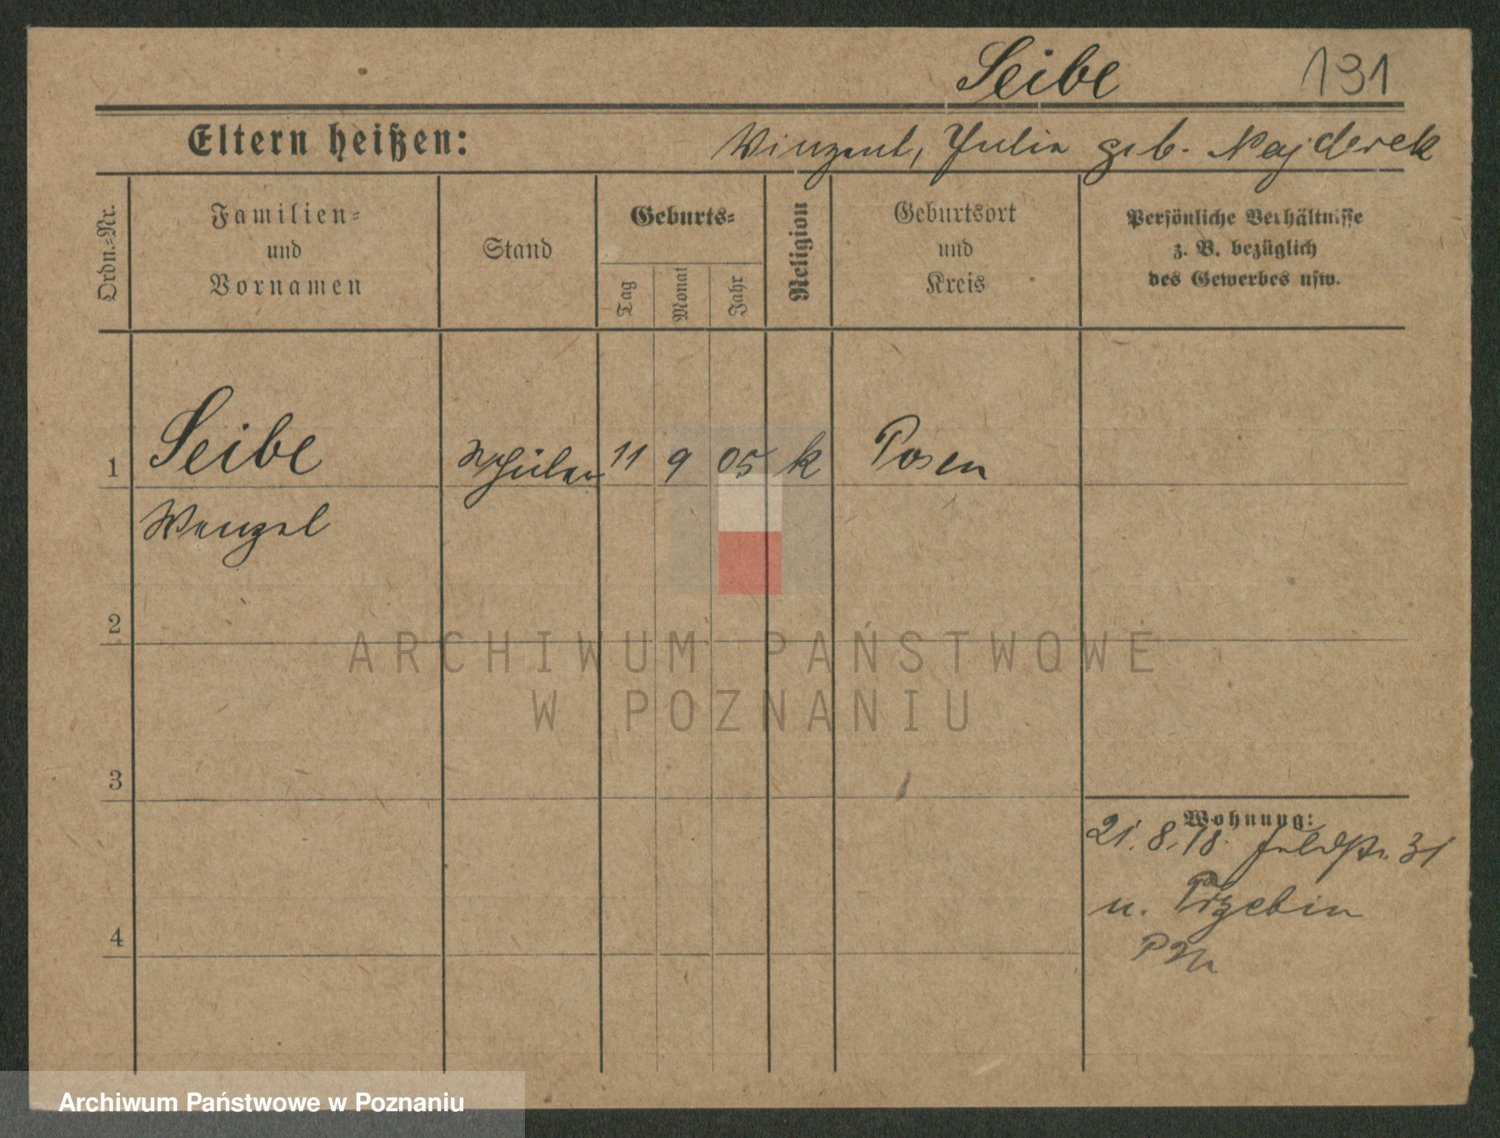 Seibe 131
Eltern heißen: Vinzent, Julia geb. Najderek
Ordn.-Nr.
Familien-
und
Vornamen
Stand
Geburts-
Tag
Monat
Jahr
Religion
Geburtsort
und
Kreis
Persönliche Verhältnisse
z. B. bezüglich
des Gewerbes usw.
1 Seibe Schüler 11 9 05 k Posen
Wenzel
2
3
4
Wohnung:
21.8.18. Feldstr. 31
u.
ARCHIWUM PAŃSTWOWE
W POZNANIU
Archiwum Państwowe w Poznaniu